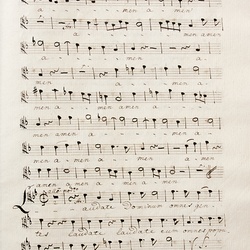 a - - men a - men
men a - - - - men amen
a - - - - men a -
men a - men a - - -
men amen a - - - -
men a - - men a -
amen a - men a - men
Laudate Dominum omnes gen -
tes laudate laudate eum omnes popu